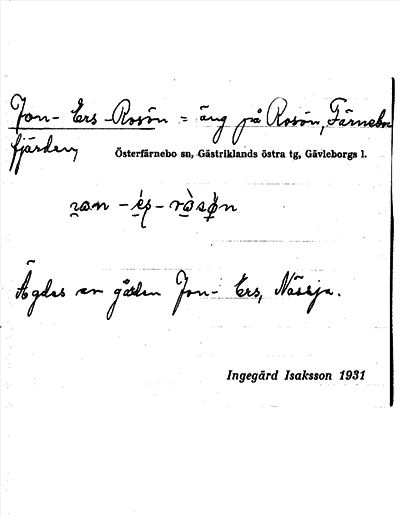 Jon-Ers-Rosön = äng på Rosön, Färnebo
fjärden,
Österfärnebo sn, Gästriklands östra tg, Gävleborgs l.
Ägdes av gården Jon-Ers, Nässja.
Ingegärd Isaksson 1931